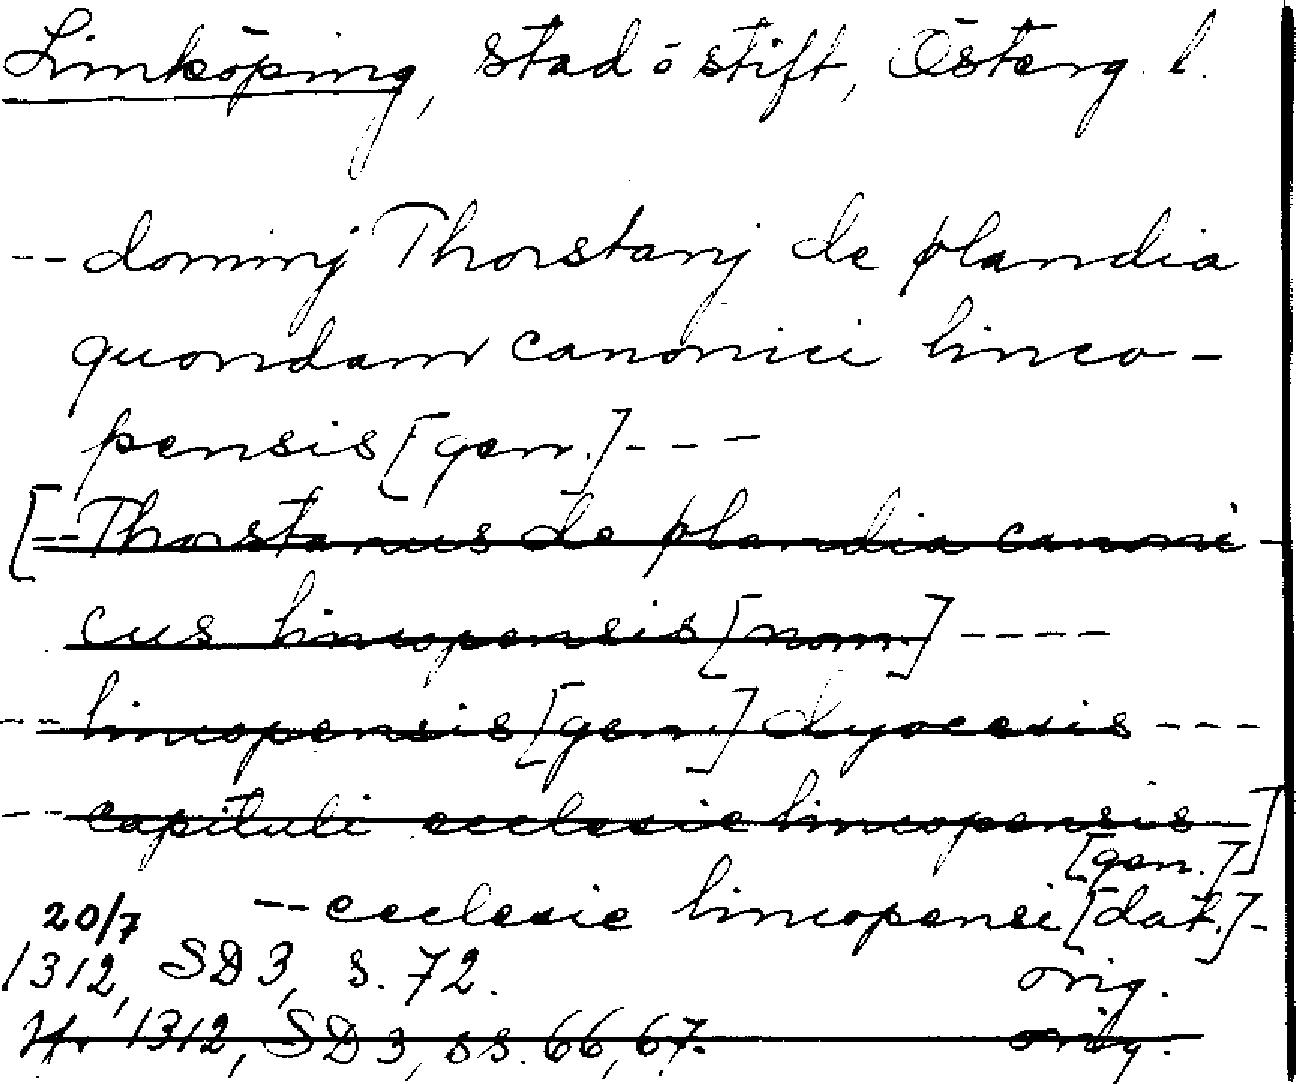 Linköping, stad o stift, Österg. l.
-- dominj Thorstanj de plandia
quondam canonici linco-
pensis [gen.] ---
[-- Thorstanus de plandia canoni-
cus lincopensis [nom.] ----
-- lincopensis [gen.] dyocesis ---
-- capituli ecclesie lincopensis -]
[gen.]
20/7 -- ecclesie lincopensi [dat.] -
1312, SD 3, s. 72. orig.
1312, SD 3, ss. 66, 67. orig.